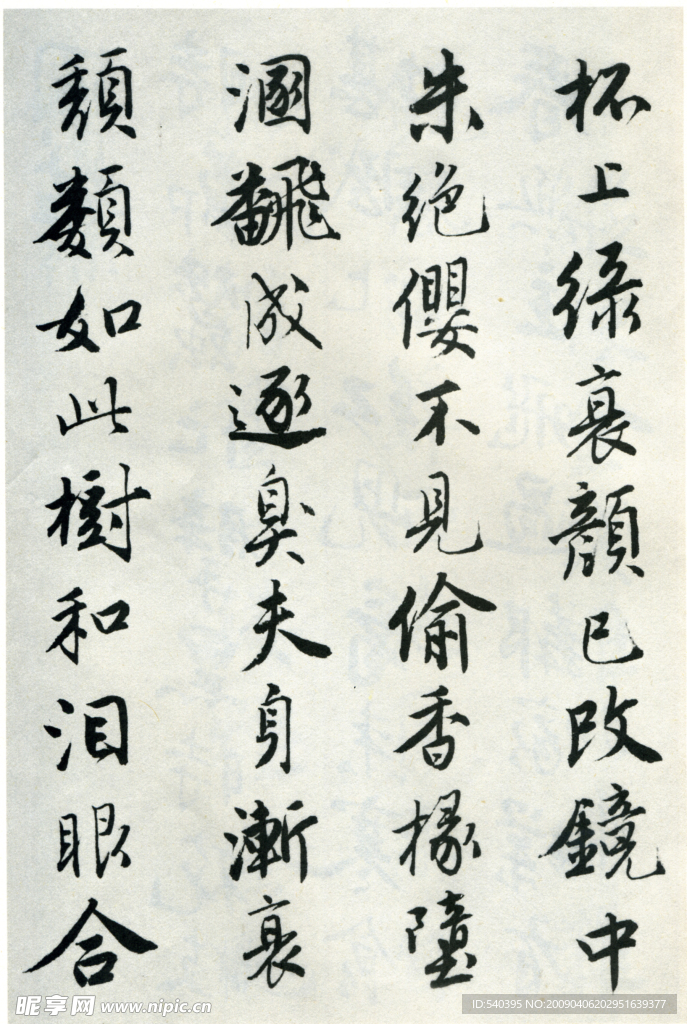 杯上绿衰颜已改镜中
朱绝缨不见偷香掾堕
溷翻成逐臭夫身渐衰
颓类如此树和泪眼合
昵享网 www.nipic.cn
ID:540395 NO:20090406202951639377